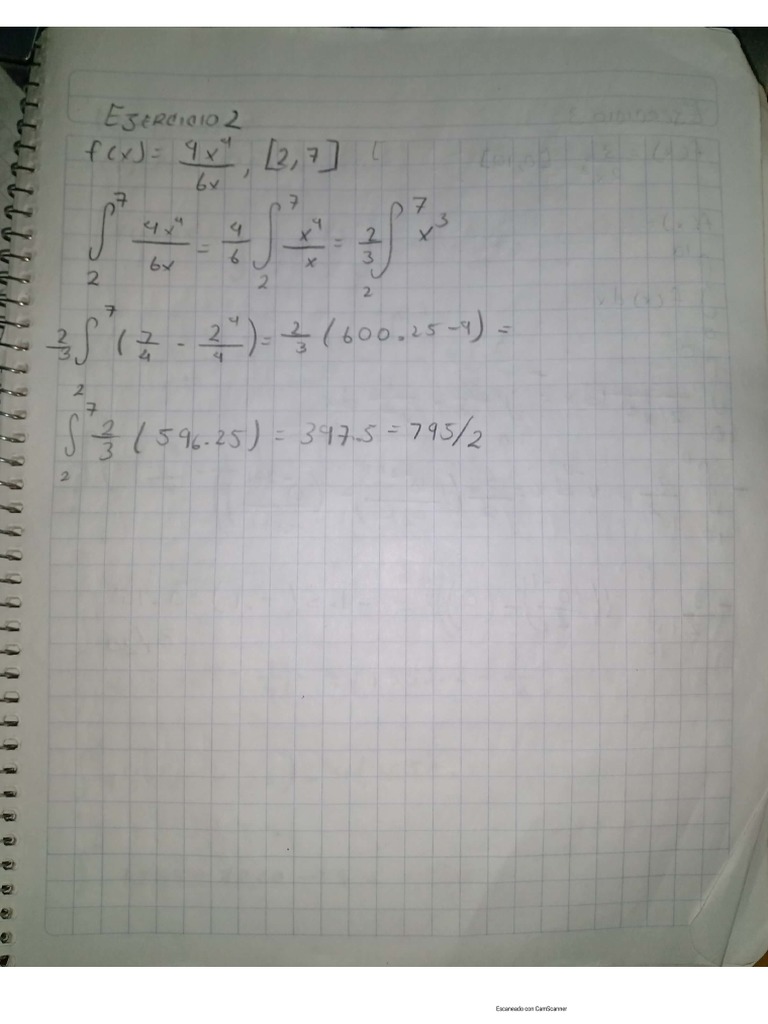 EJERCICIO 2
f(x) = 4x⁴/6x, [2,7]
∫₂⁷ 4x⁴/6x = 4/6 ∫₂⁷ x⁴/x = 2/3 ∫₂⁷ x³
2/3 ∫₂⁷ (7/4 - 2⁴/4) = 2/3 (600.25-4) =
∫₂⁷ 2/3 (596.25) = 397.5 = 795/2
Escaneado con CamScanner